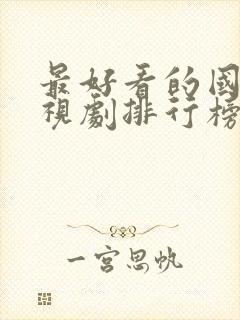 最好看的國
視劇排行榜
一宮思帆